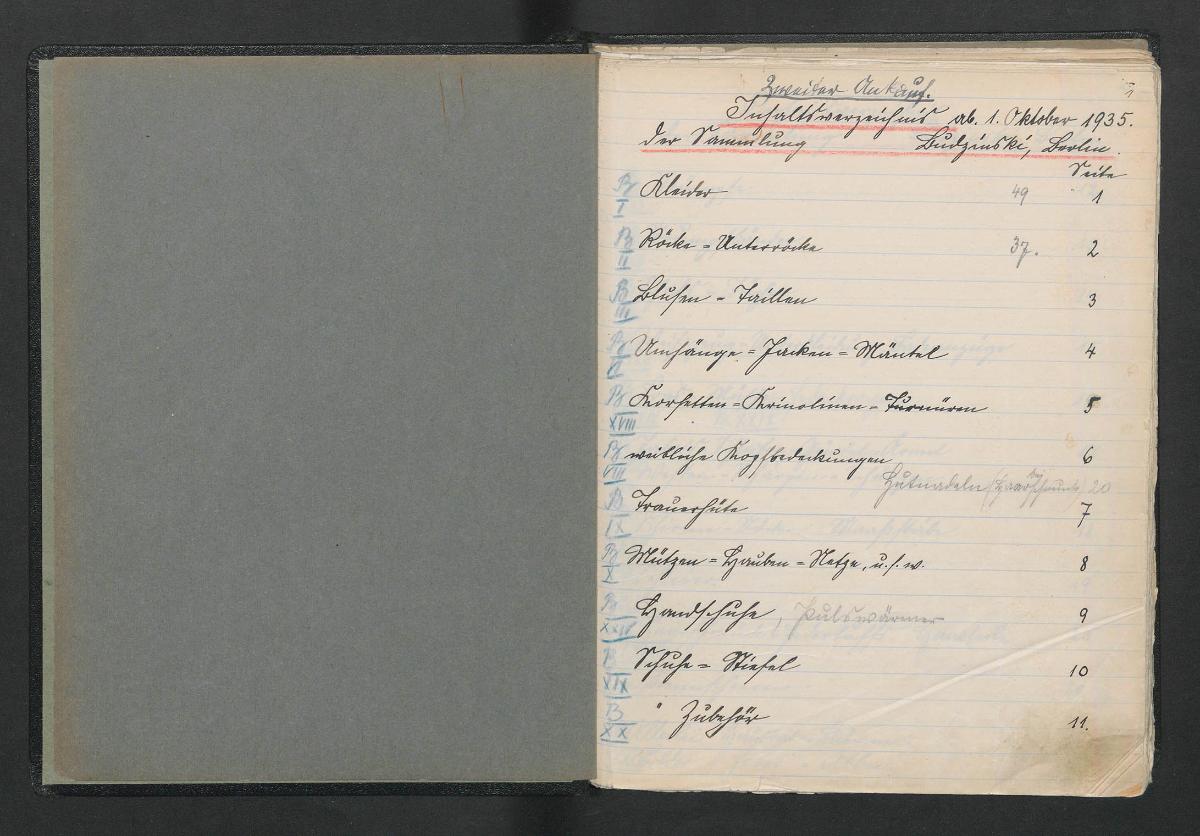 1
Zweiter Ankauf.
Inhaltsverzeichnis ab. 1. Oktober 1935.
der Sammlung Budzinski, Berlin.
Seite
B I Kleider 49 1
B II Röcke = Unterröcke 37. 2
B III Blusen = Taillen 3
B Umhänge = Jacken = Mäntel 4
B XVIII Korsetten = Krinolinen = Turnüren 5
B VIII weibliche Kopfbedeckungen 6
Hutnadeln 20
B IX Trauerhüte 7
B X Mützen = Hauben = Netze, u. s. w. 8
B XXIV Handschuhe, Pulswärmer 9
B XIX Schuhe = Stiefel 10
B XX " Zubehör 11.